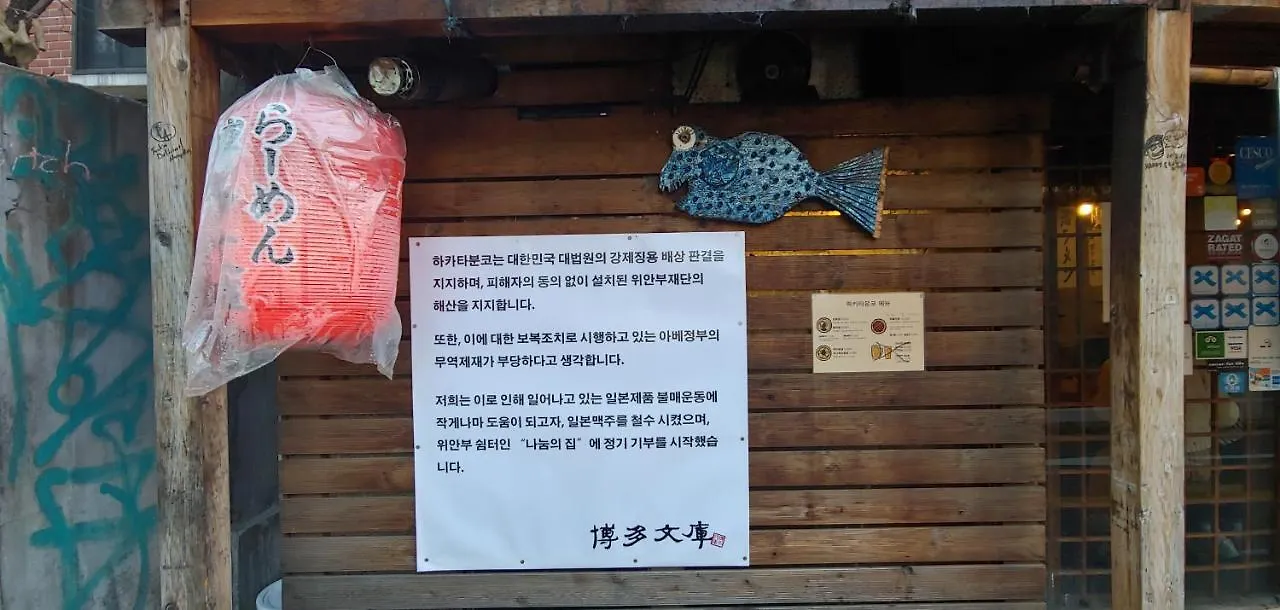 らーめん
하카타분코는 대한민국 대법원의 강제징용 배상 판결을
지지하며, 피해자의 동의 없이 설치된 위안부재단의
해산을 지지합니다.
또한, 이에 대한 보복조치로 시행하고 있는 아베정부의
무역제재가 부당하다고 생각합니다.
저희는 이로 인해 일어나고 있는 일본제품 불매운동에
작게나마 도움이 되고자, 일본맥주를 철수 시켰으며,
위안부 쉼터인 “나눔의 집” 에 정기 기부를 시작했습
니다.
博多文庫
하카타분코 메뉴
CESCO
ZAGAT
RATED
VISA